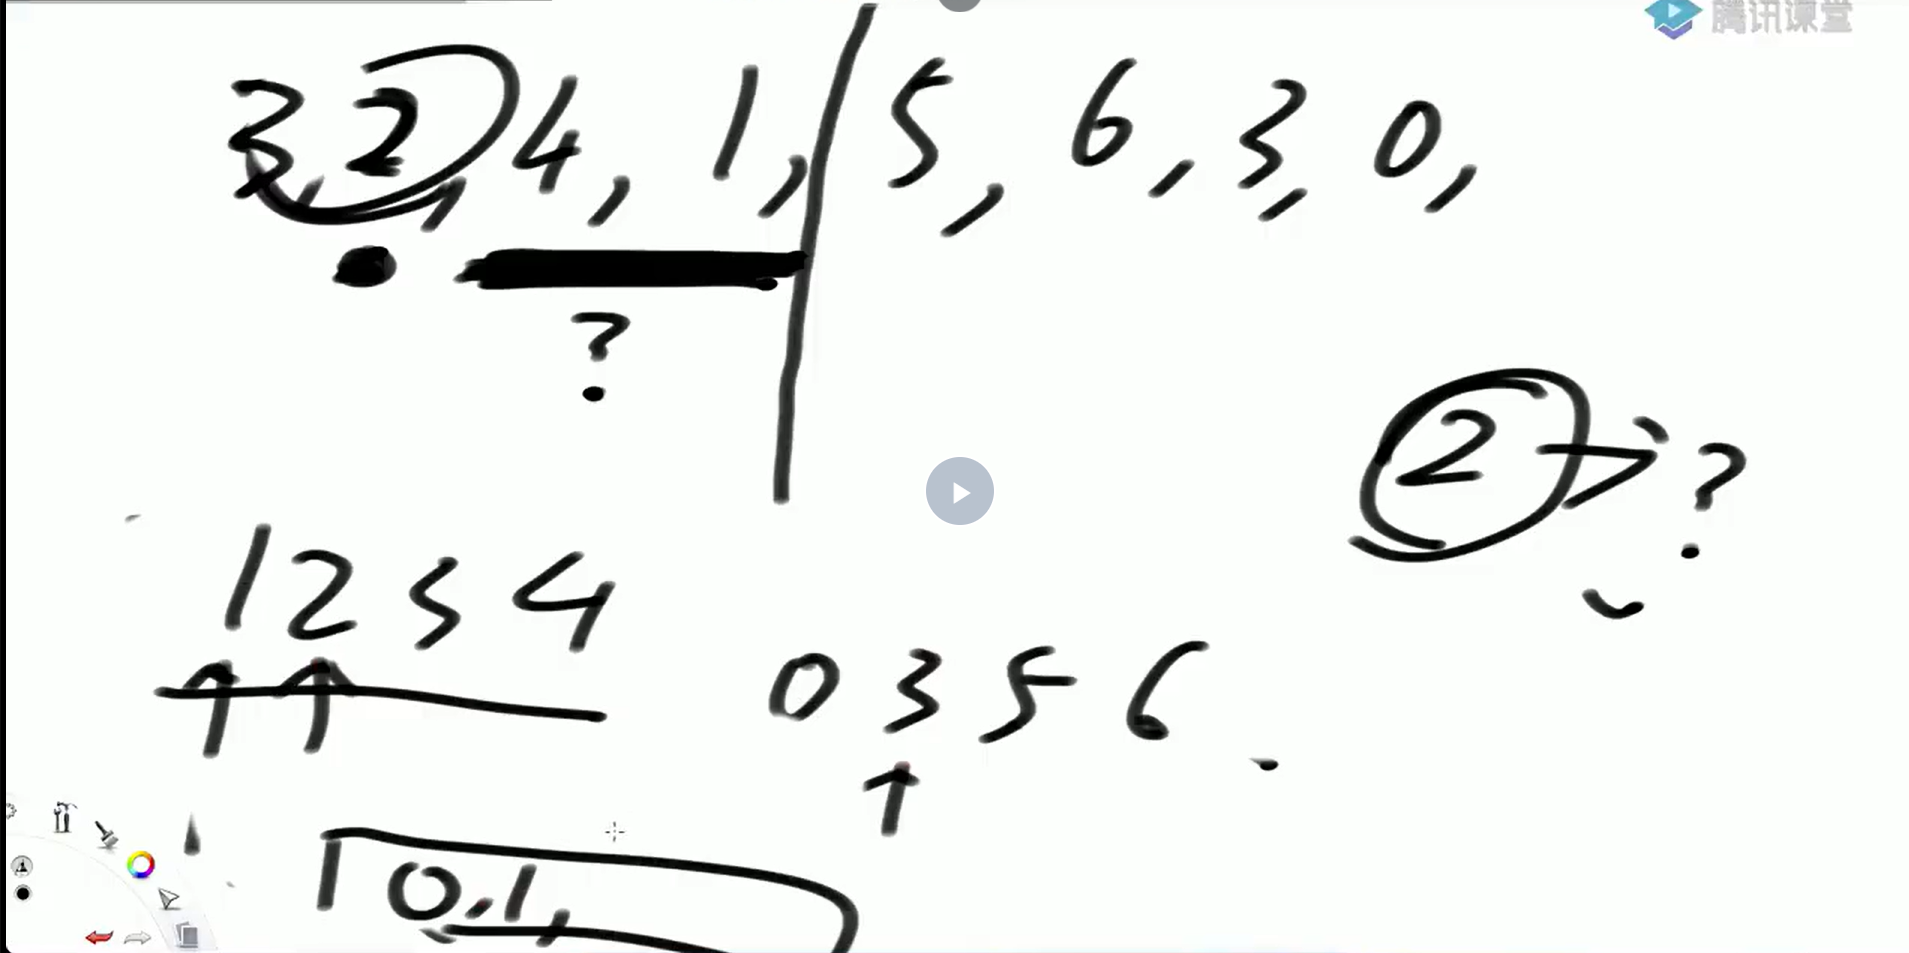 腾讯课堂
3, 2, 4, 1, 5, 6, 3, 0,
?
2 → ?
1 2 3 4
0 3 5 6
0, 1,